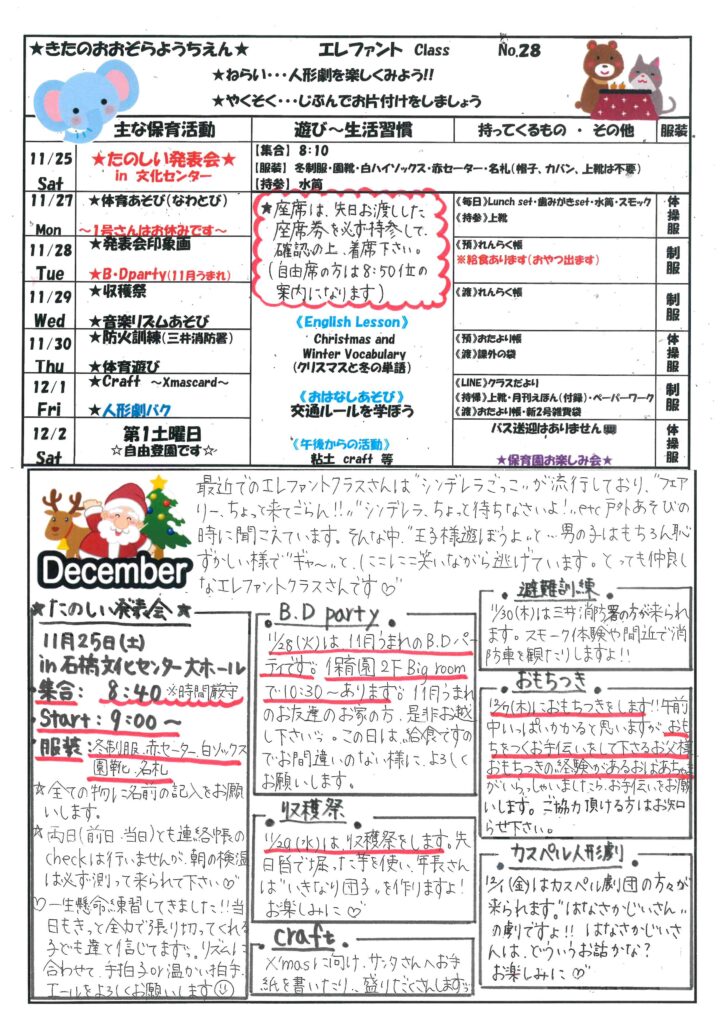 ★きたのおおぞらようちえん★ エレファント Class No.28
★ねらい・・・人形劇を楽しくみよう!!
★やくそく・・・じぶんでお片付けをしましょう
主な保育活動 遊び～生活習慣 持ってくるもの ・ その他 服装
11/25 Sat
★たのしい発表会★
in 文化センター
【集合】 8:10
【服装】 冬制服・園靴・白ハイソックス・赤セーター・名札(帽子、カバン、上靴は不要)
【持参】 水筒
11/27 Mon
★体育あそび(なわとび)
～1号さんはお休みです～
《毎日》Lunch set・歯みがきset・水筒・スモック
《持参》上靴
体操服
11/28 Tue
★発表会印象画
★B・Dparty(11月うまれ)
《預》れんらく帳
※給食あります(おやつ出ます)
制服
11/29 Wed
★収穫祭
★音楽リズムあそび
《渡》れんらく帳
制服
11/30 Thu
★防火訓練(三井消防署)
★体育遊び
《預》おたより帳
《渡》課外の袋
体操服
12/1 Fri
★Craft ～Xmascard～
★人形劇バク
《LINE》クラスだより
《持帰》上靴・月刊えほん(付録)・ペーパーワーク
《渡》おたより帳・新2号雑費袋
制服
12/2 Sat
第1土曜日
☆自由登園です☆
バス送迎はありません
★保育園お楽しみ会★
体操服
★座席は、先日お渡しした
座席券を必ず持参して、
確認の上、着席下さい。
(自由席の方は8:50位の
案内になります)
《English Lesson》
Christmas and
Winter Vocabulary
(クリスマスと冬の単語)
《おはなしあそび》
交通ルールを学ぼう
《午後からの活動》
粘土 craft 等
December
最近でのエレファントクラスさんは"シンデレラごっこ"が流行しており、"フェア
リー、ちょっと来てごらん!!" "シンデレラ、ちょっと待ちなさいよ!" etc 戸外あそびの
時に聞こえています。そんな中、"王子様遊ぼうよ"と…男の子はもちろん恥
ずかしい様で"ギャ〜"と、(にこにこ笑いながら逃げています。とっても仲良し
なエレファントクラスさんです♡
★たのしい発表会★
11月25日(土)
in 石橋文化センター大ホール
・集合: 8:40 ※時間厳守
・Start: 9:00～
・服装: 冬制服、赤セーター、白ソックス
園靴、名札
☆全ての物に名前の記入をお願
いします。
★両日(前日、当日)とも連絡帳の
checkは行いませんが、朝の検温
は必ず測って来られて下さい♡
♡一生懸命練習してきました!!当
日もきっと全力で張り切ってくれる
子ども達と信じてます。リズムに
合わせて、手拍子や温かい拍手、
エールをよろしくお願いします☺
B.D party
11/28(火)は、11月うまれのB.Dパー
ティです。保育園2F Big room
で10:30～あります。11月うまれ
のお友達のお家の方、是非お越
し下さい。この日は、給食ですの
でお間違いのない様に、よろしく
お願いします。
収穫祭
11/29(水)は、収穫祭をします。先
日皆で掘った芋を使い、年長さん
は"いきなり団子"を作りますよ!
お楽しみに♡
craft
X'masに向け、サンタさんへお手
紙を書いたり、盛りだくさんします
避難訓練
11/30(木)は三井消防署の方が来られ
ます。スモーク体験や間近で消
防車を観たりしますよ!!
おもちつき
12/7(木)におもちつきをします!!午前
中いっぱいかかると思いますが、おも
ちをつくお手伝いをして下さるお父様
おもちつきの経験があるおばあちゃま
がいらっしゃいましたら、お手伝いをお願
いします。ご協力頂ける方はお知
らせ下さい。
カスペル人形劇
12/1(金)はカスペル劇団の方々が
来られます。"はなさかじいさん"
の劇ですよ!! はなさかじいさ
んは、どういうお話かな?
お楽しみに♡